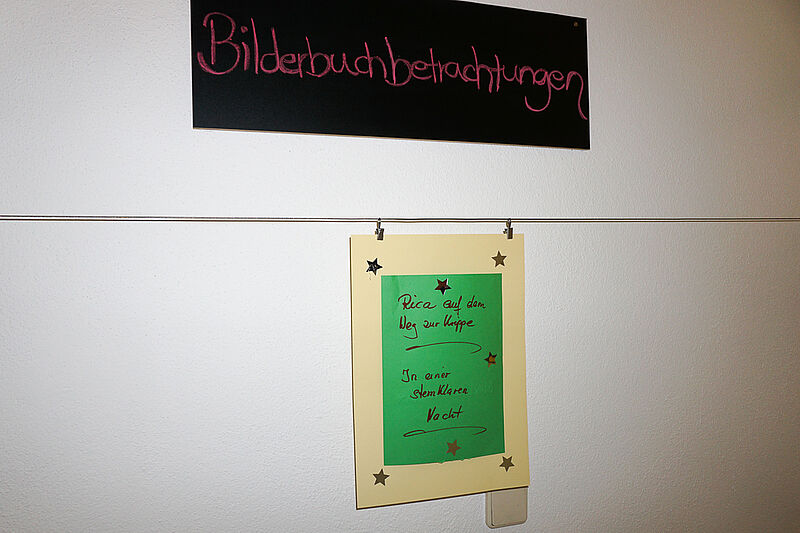 Bilderbuchbetrachtungen
Rica auf dem
Weg zur Krippe
In einer
sternklaren
Nacht